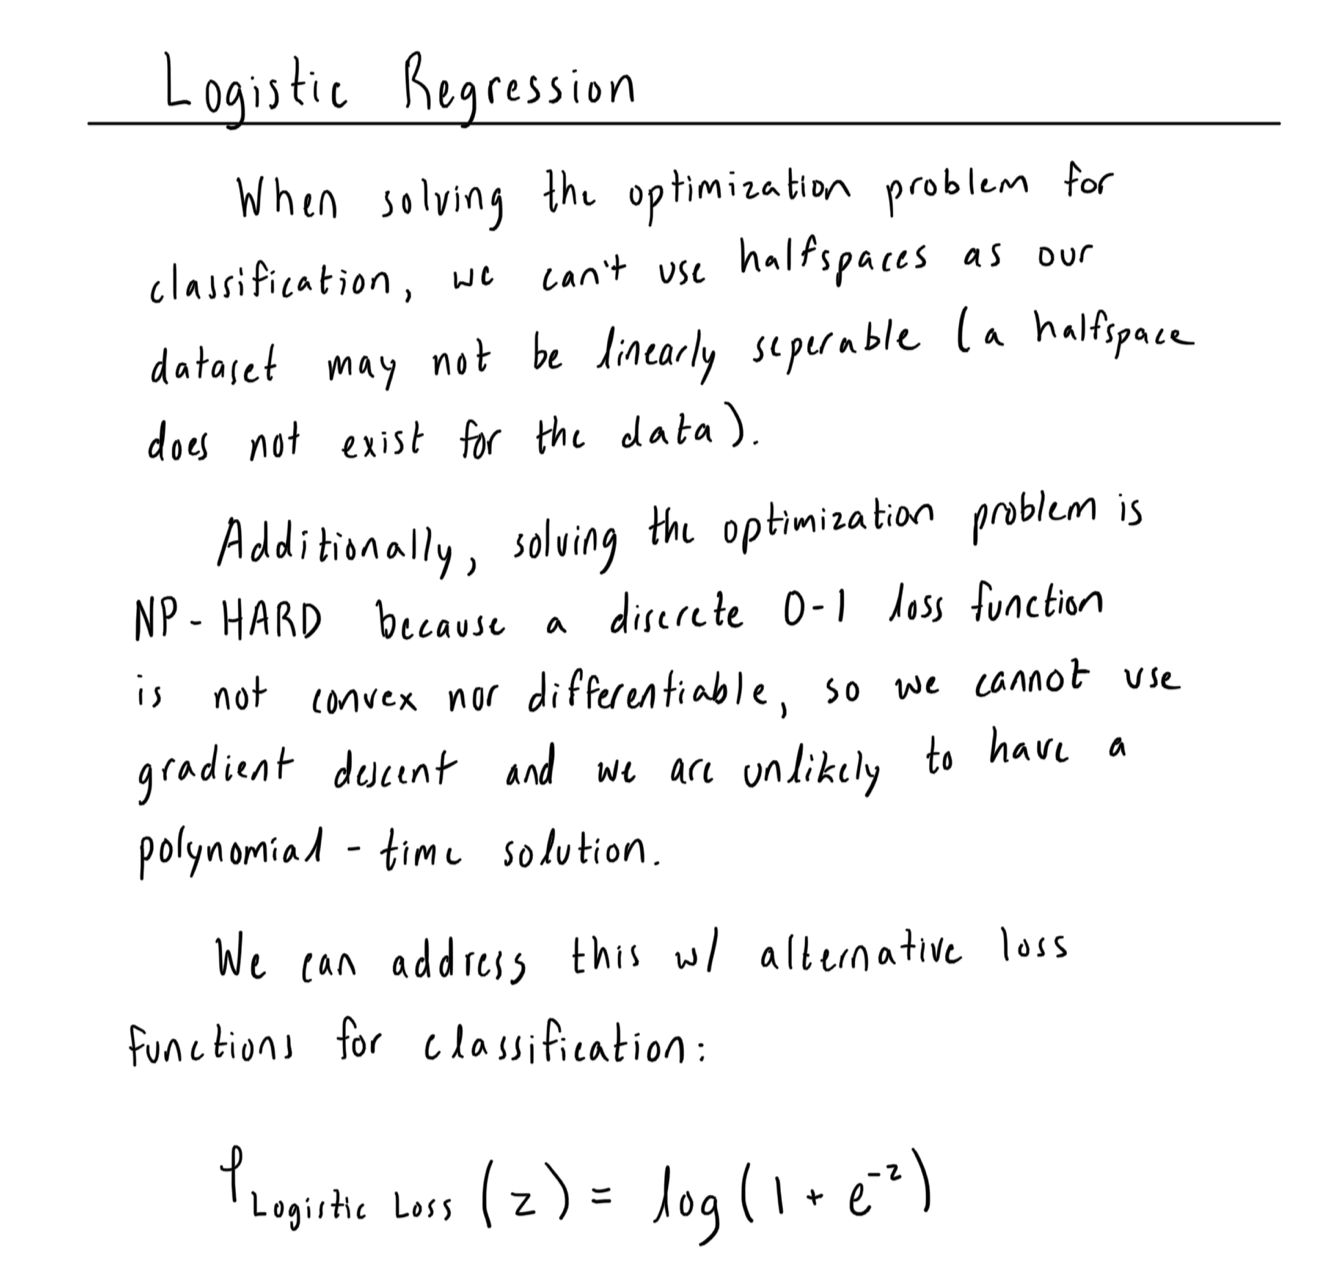 Logistic Regression
When solving the optimization problem for
classification, we can't use halfspaces as our
dataset may not be linearly seperable (a halfspace
does not exist for the data).
Additionally, solving the optimization problem is
NP-HARD because a discrete 0-1 loss function
is not convex nor differentiable, so we cannot use
gradient descent and we are unlikely to have a
polynomial-time solution.
We can address this w/ alternative loss
functions for classification:
φ_Logistic Loss (z) = log(1 + e^{-z})